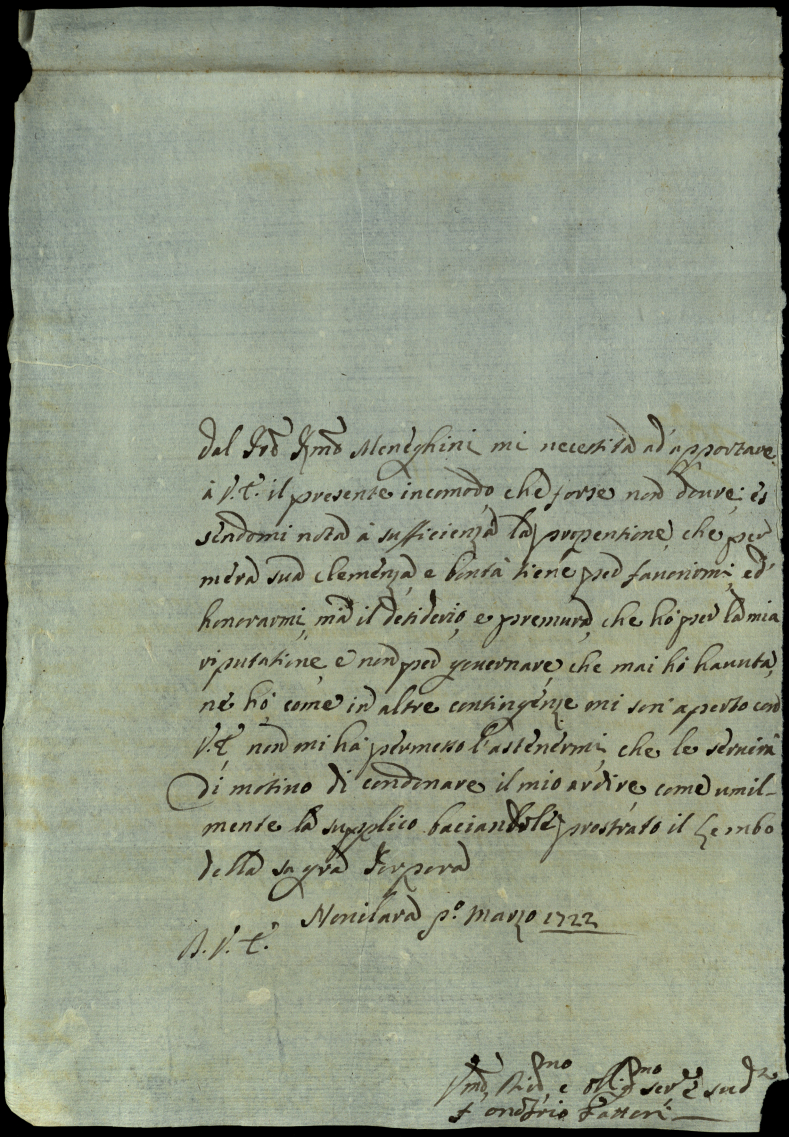 dal Sod.º Ill.mo Meneghini mi necessita ad'apportare
à V.E. il presente incomodo, che forse non dovrei es
sendomi nota à sufficienza la propentione, che per
mera sua clemenza e bontà tiene per favorirmi, ed'
honorarmi, mà il desiderio, e premura, che hò per la mia
riputatione, e non per governare, che mai hò havuta,
ne hò, come in altre contingenze mi son' aperto con
V.E. non mi hà permesso l'astenermi, che le servirà
di motivo di condonare il mio ardire come umil-
mente la supplico baciandole prostrato il Lembo
della sagra Porpora
Novilara p.º Marzo 1722
D. V. E.
Um.mo e Oblig.mo ser.e e sud.o
F. Onofrio Fattori